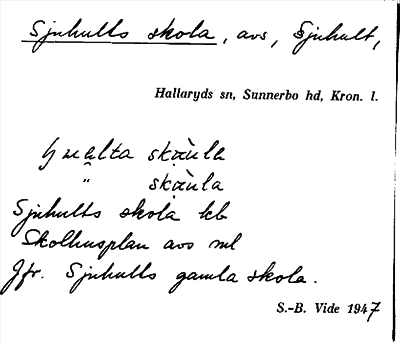 Sjuhults skola, avs, Sjuhult,
Hallaryds sn, Sunnerbo hd, Kron. l.
skàula
" skàula
Sjuhults skola kb
Skolhusplan avs ml
Jfr. Sjuhults gamla skola.
S.-B. Vide 1947